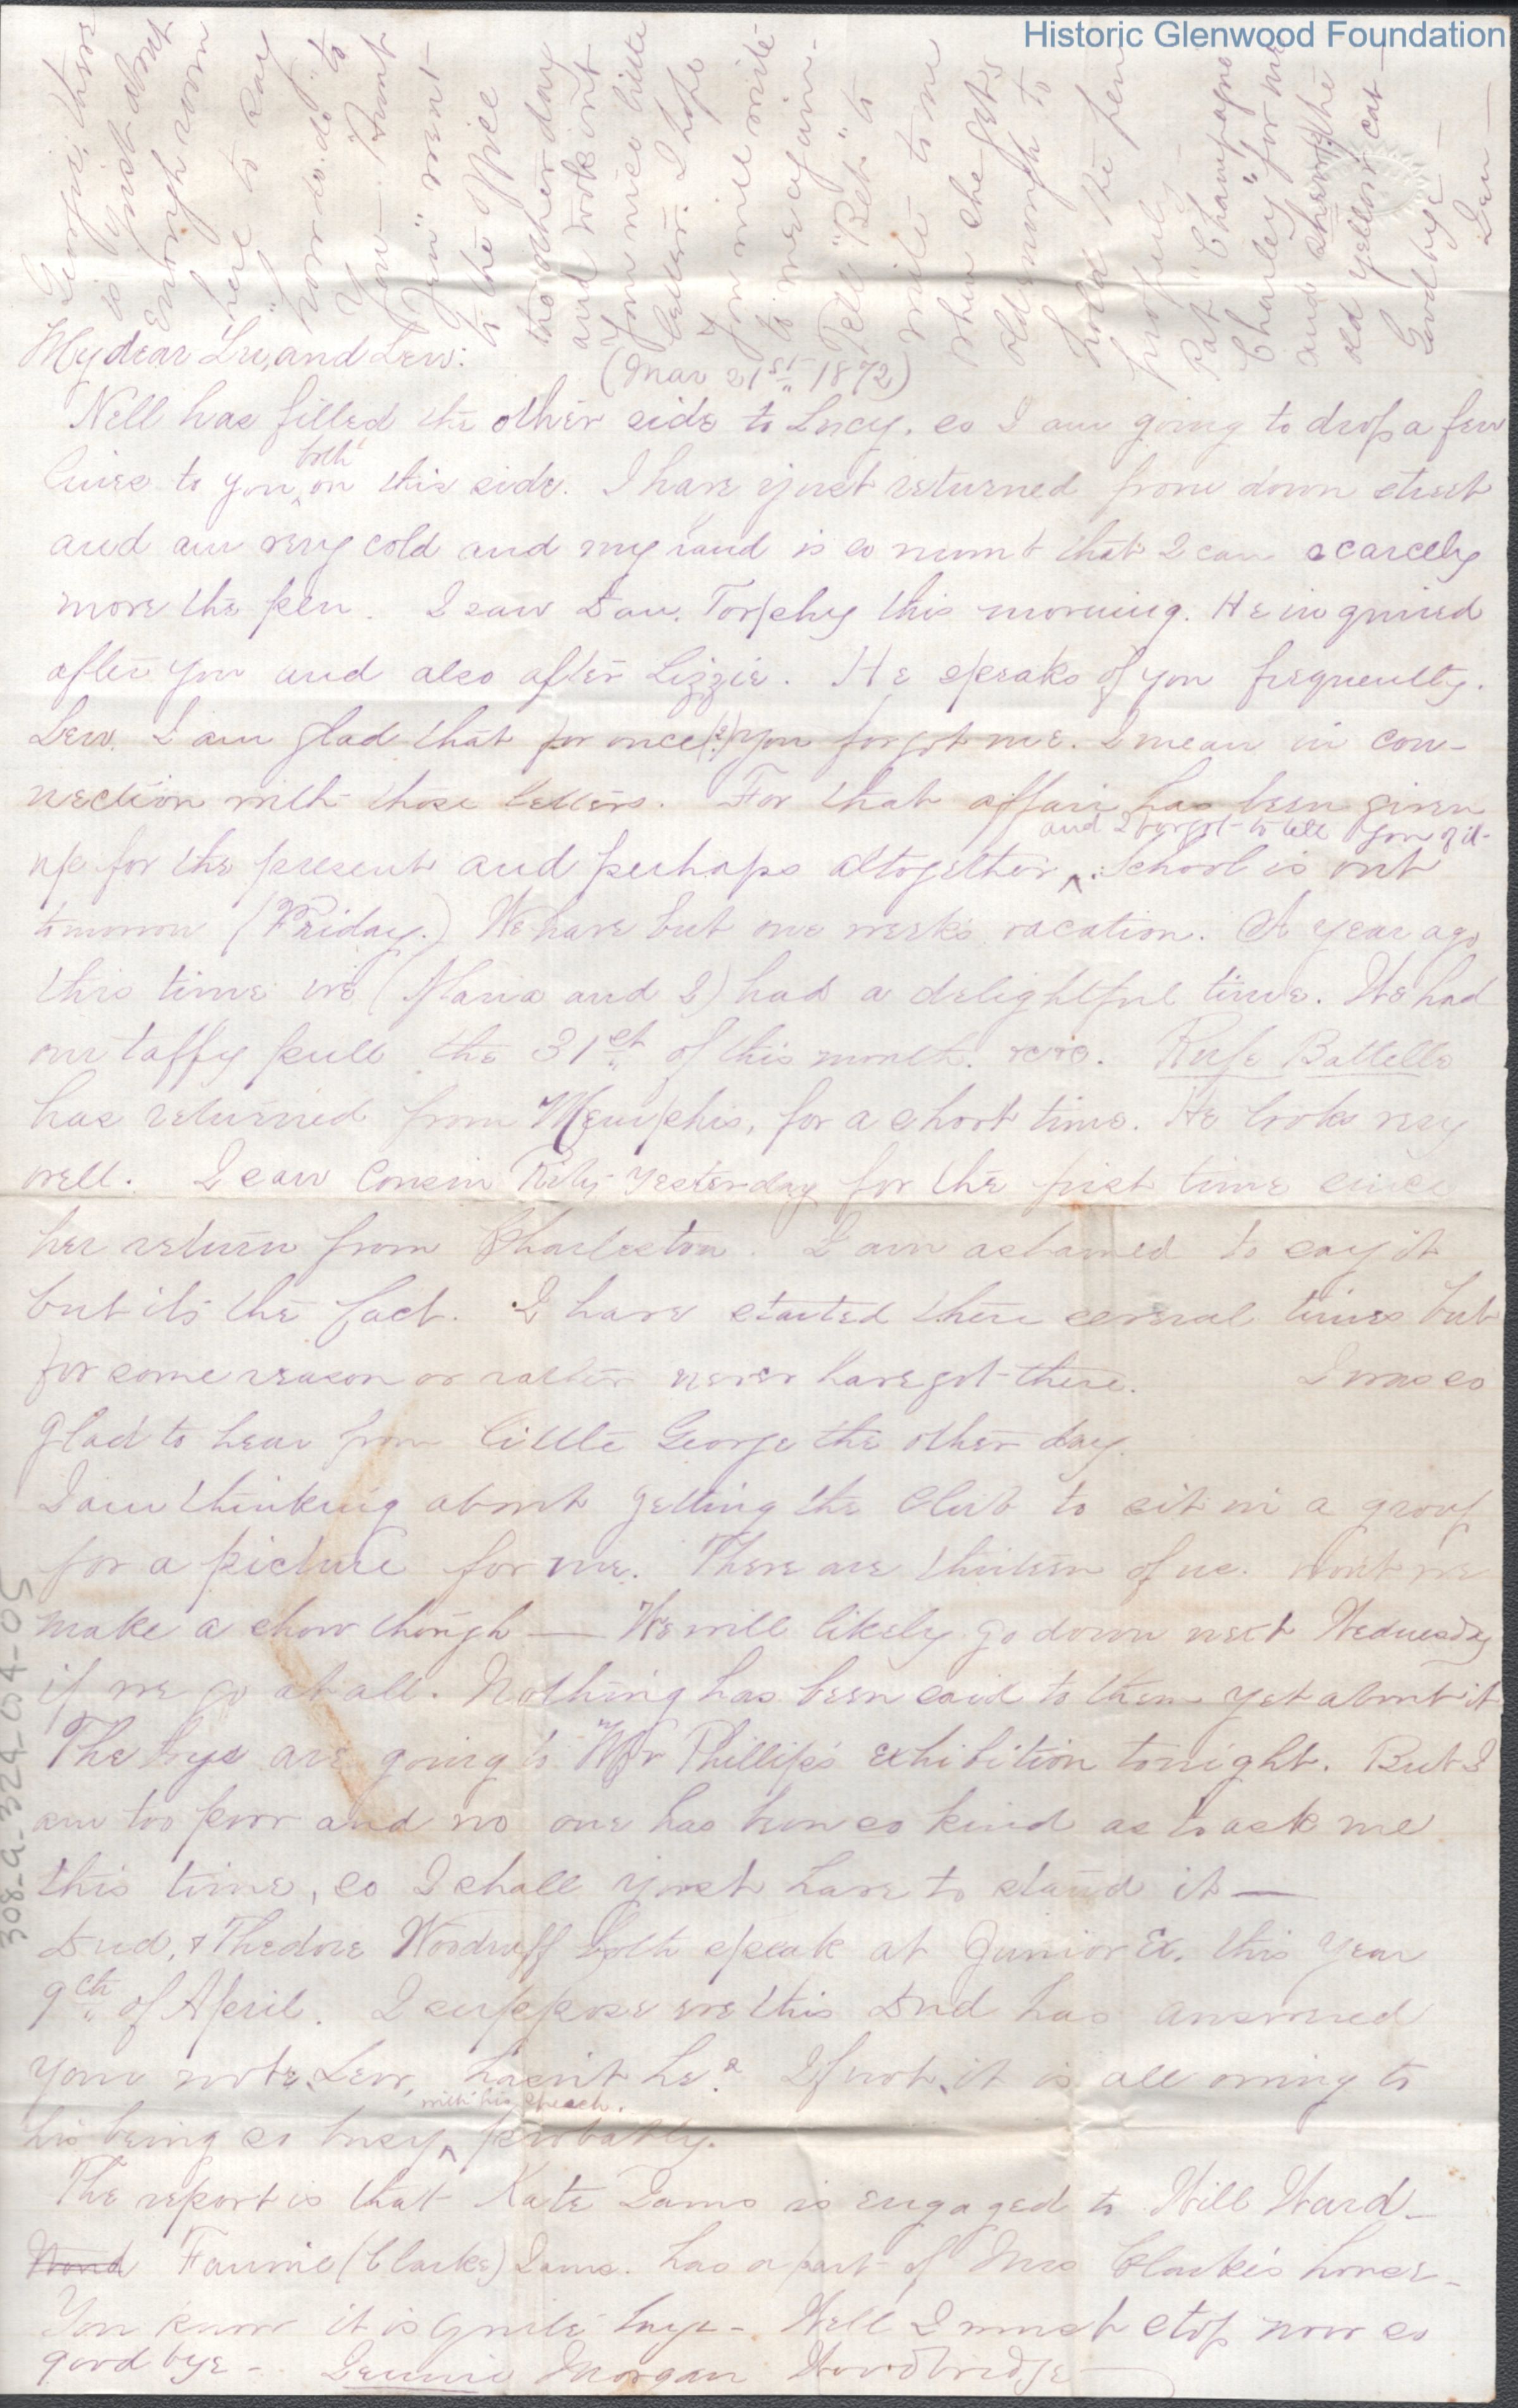 Historic Glenwood Foundation
Georgie: there
is just about
enough room
here to say
"how-do-de" to
you— "Aunt
Jen" went
to the office
the other day
and took out
your nice little
letter. I hope
you will write
to me again.
Tell "Bet" to
write to me
when she gets
old enough to
hold the pen
properly—
Pat "Champagne
Charley" for me
and the
old yellow cat—
Good bye—
Jen—
My dear Lu, and Lew:
(Mar 21st 1872)
Nell has filled the other side to Lucy, so I am going to drop a few
lines to you both on this side. I have just returned from down street
and am very cold and my hand is so numb that I can scarcely
move the pen. I saw Dau. Torpley this morning. He inquired
after you and also after Lizzie. He speaks of you frequently.
Lew. I am glad that for once(!) you forgot me. I mean in con-
nection with those letters. For that affair has been given
up for the present and perhaps altogether, and I forgot to tell you of it. School is out
tomorrow (Friday.) We have but one week's vacation. A year ago
this time we (Maria and I) had a delightful time. We had
our taffy pull the 31st of this month. Rufe Battelle
has returned from Memphis, for a short time. He looks very
well. I saw Cousin yesterday for the first time since
her return from Charleston. I am ashamed to say it
but its the fact. I have started there several times but
for some reason or rather never have got there. I was so
glad to hear from little George the other day.
I am thinking about getting the Club to sit in a group
for a picture for me. There are thirteen of us. Wont we
make a show though — We will likely go down next Wednesday
if we go at all. Nothing has been said to them yet about it
The boys are going to Mr Phillip's exhibition tonight. But I
am too poor and no one has been so kind as to ask me
this time, so I shall just have to stand it —
Dud, & Thedore Woodruff both speak at Junior Ex. this year
9th of April. I suppose ere this Dud has answered
your note, Lew, hasn't he? If not, it is all owing to
his being so busy with his speech, probably.
The report is that Kate Iams is engaged to Will Ward—
Ward Fannie (Clarke) Iams. has a part of Mrs Clarke's house—
You know it is quite large—. Well I must stop now so
good bye—. Jennie Morgan Woodbridge—
308-a-324-004-05